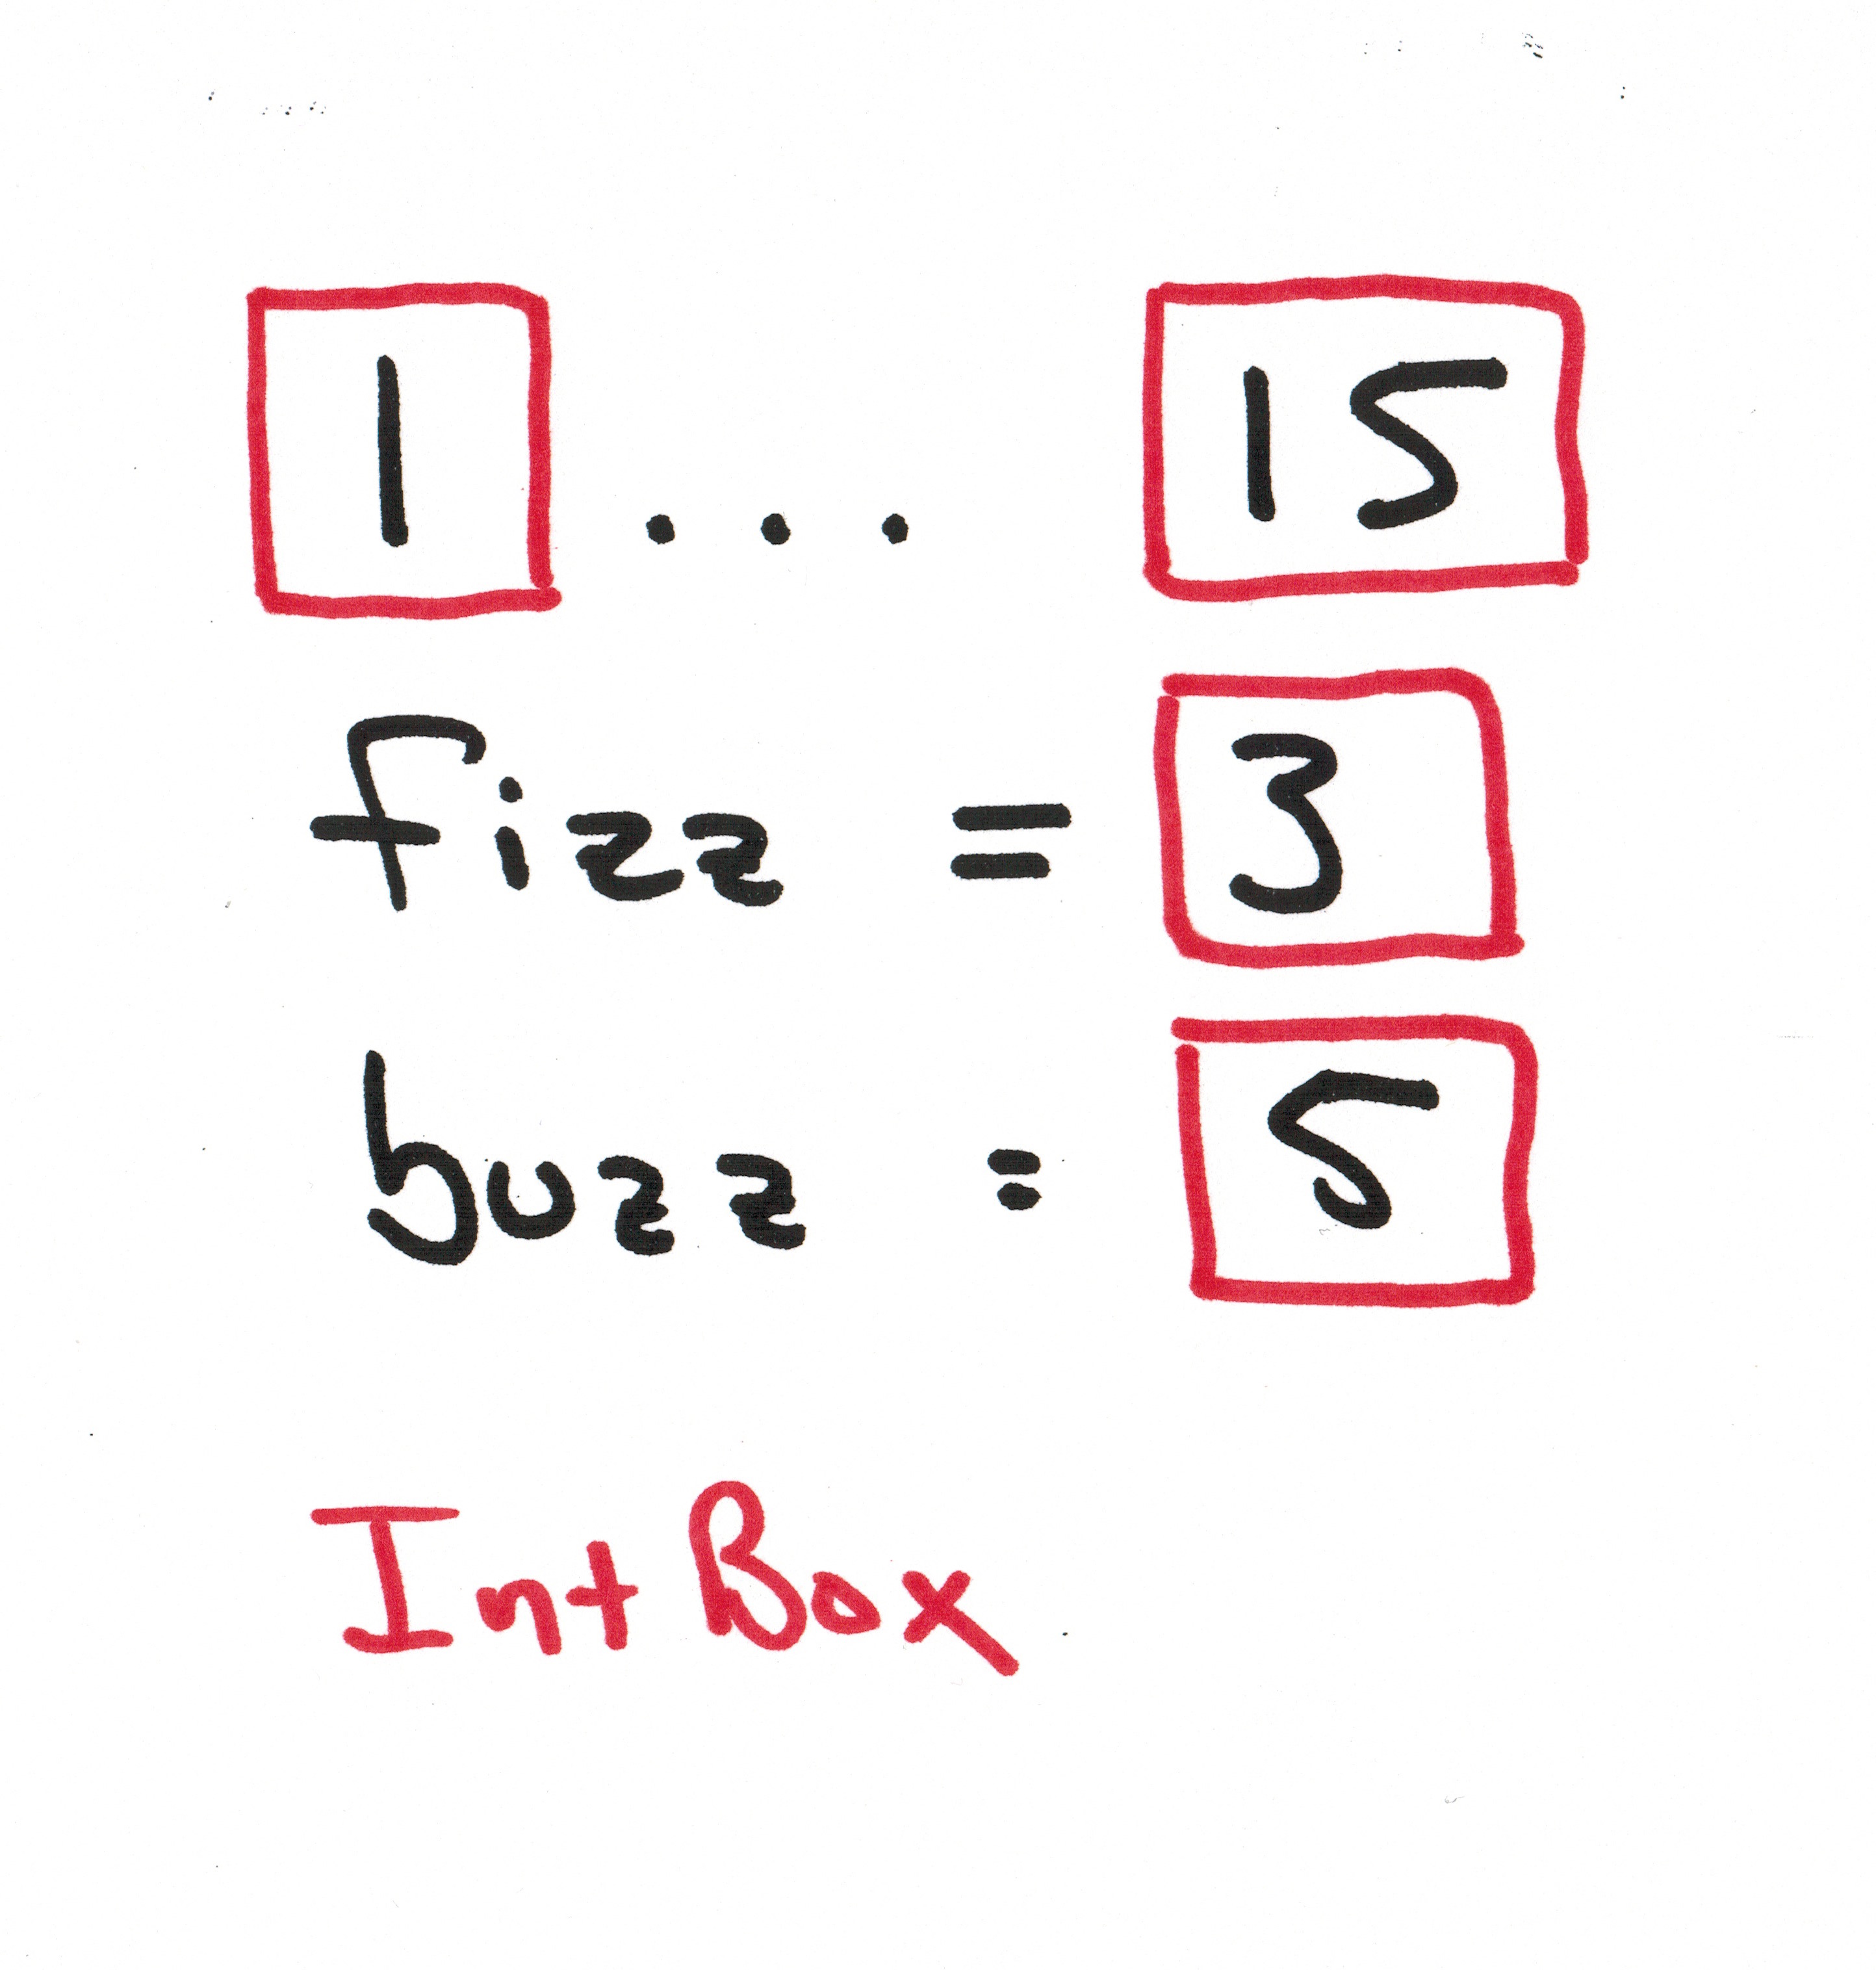 1 . . . 15
fizz = 3
buzz = 5
Int Box